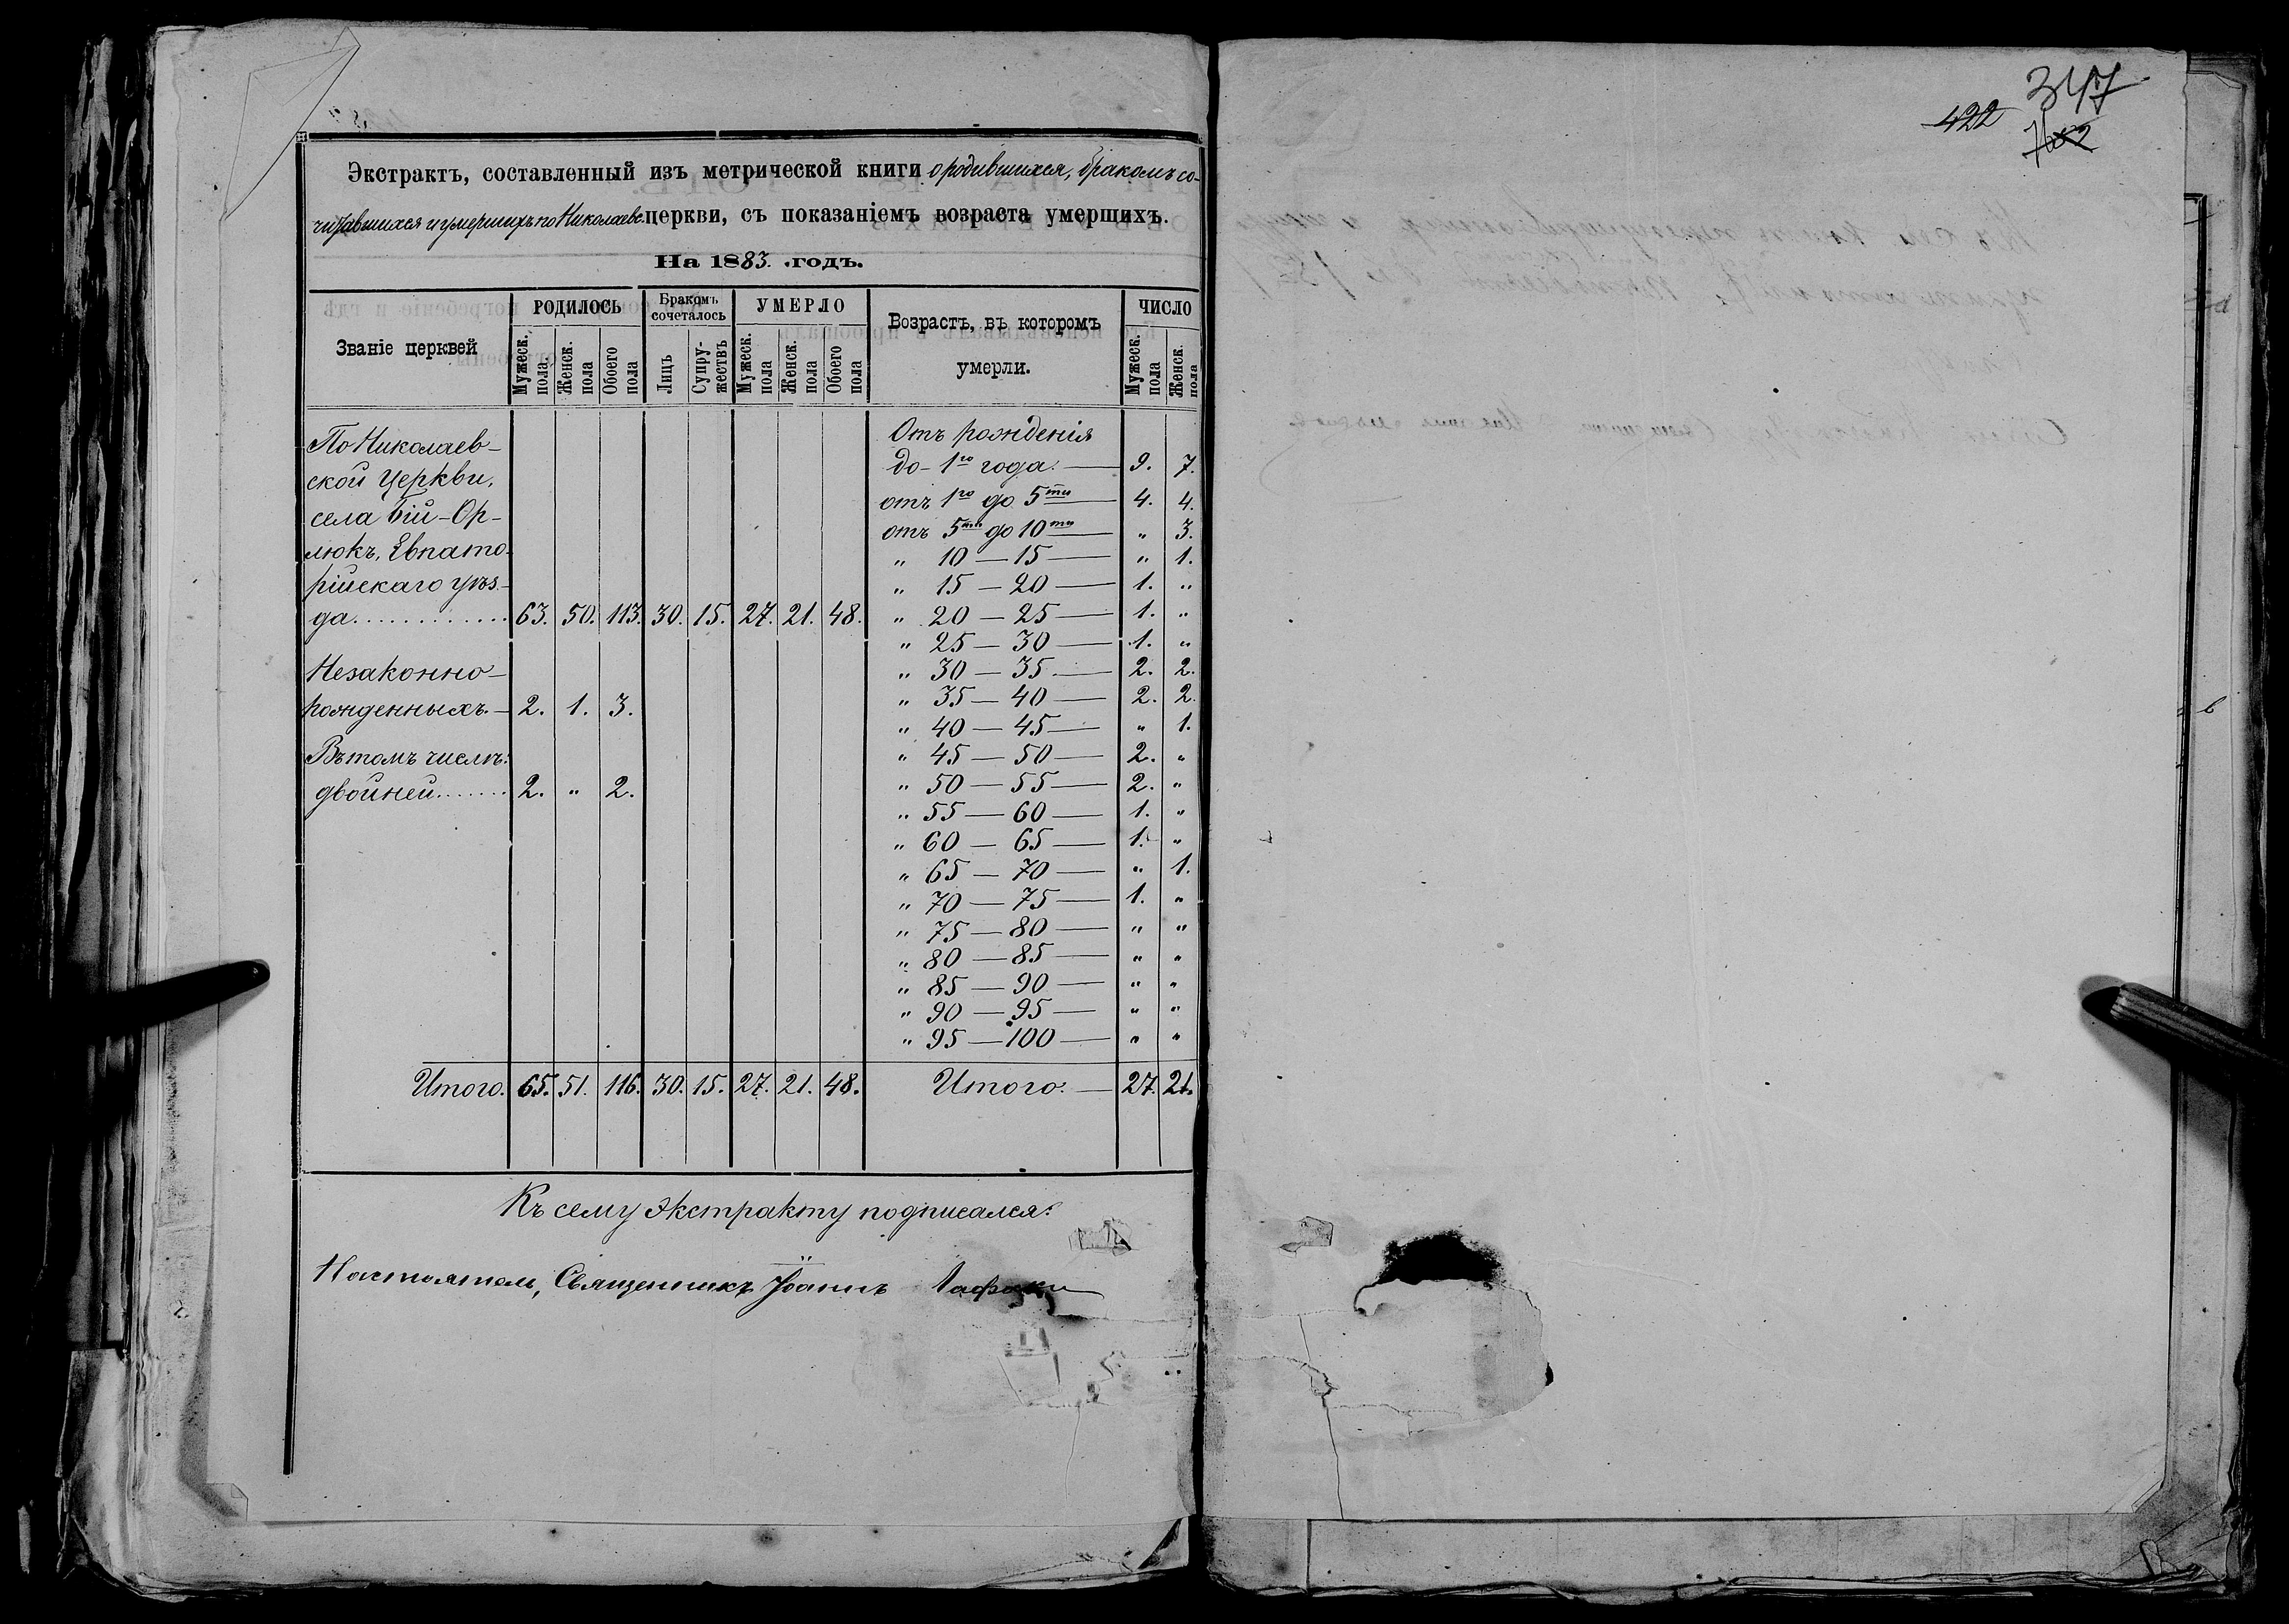 Экстрактъ, составленный изъ метрической книги о родившихся, бракомъ со-
читавшихся и умершихъ по Николаевс. церкви, съ показаніемъ возраста умершихъ.
На 1883. годъ.
Званіе церквей | РОДИЛОСЬ | Бракомъ сочеталось | УМЕРЛО | Возрастъ, въ которомъ умерли. | ЧИСЛО
Мужеск. пола | Женск. пола | Обоего пола | Лицъ | Супружествъ | Мужеск. пола | Женск. пола | Обоего пола | Мужеск. пола | Женск. пола
По Николаев-
ской Церкви,
села Бій-Ор-
люкъ, Евпато-
рійскаго уѣз-
да............ 63. 50. 113. 30. 15. 27. 21. 48.
Незаконно-
рожденныхъ.— 2. 1. 3.
Въ томъ числѣ:
двойней....... 2. " 2.
Итого. 65. 51. 116. 30. 15. 27. 21. 48.
Отъ рожденія
до 1го года. — 9. 7.
отъ 1го до 5ти — 4. 4.
отъ 5ти до 10ти — " 3.
" 10 — 15 — " 1.
" 15 — 20 — 1. "
" 20 — 25 — 1. "
" 25 — 30 — 1. "
" 30 — 35 — 2. 2.
" 35 — 40 — 2. 2.
" 40 — 45 — " 1.
" 45 — 50 — 2. "
" 50 — 55 — 2. "
" 55 — 60 — 1. "
" 60 — 65 — 1. "
" 65 — 70 — " 1.
" 70 — 75 — 1. "
" 75 — 80 — " "
" 80 — 85 — " "
" 85 — 90 — " "
" 90 — 95 — " "
" 95 — 100 — " "
Итого: — 27. 21.
Къ сему экстракту подписался:
Настоятель, Священникъ Іоаннъ
347
422